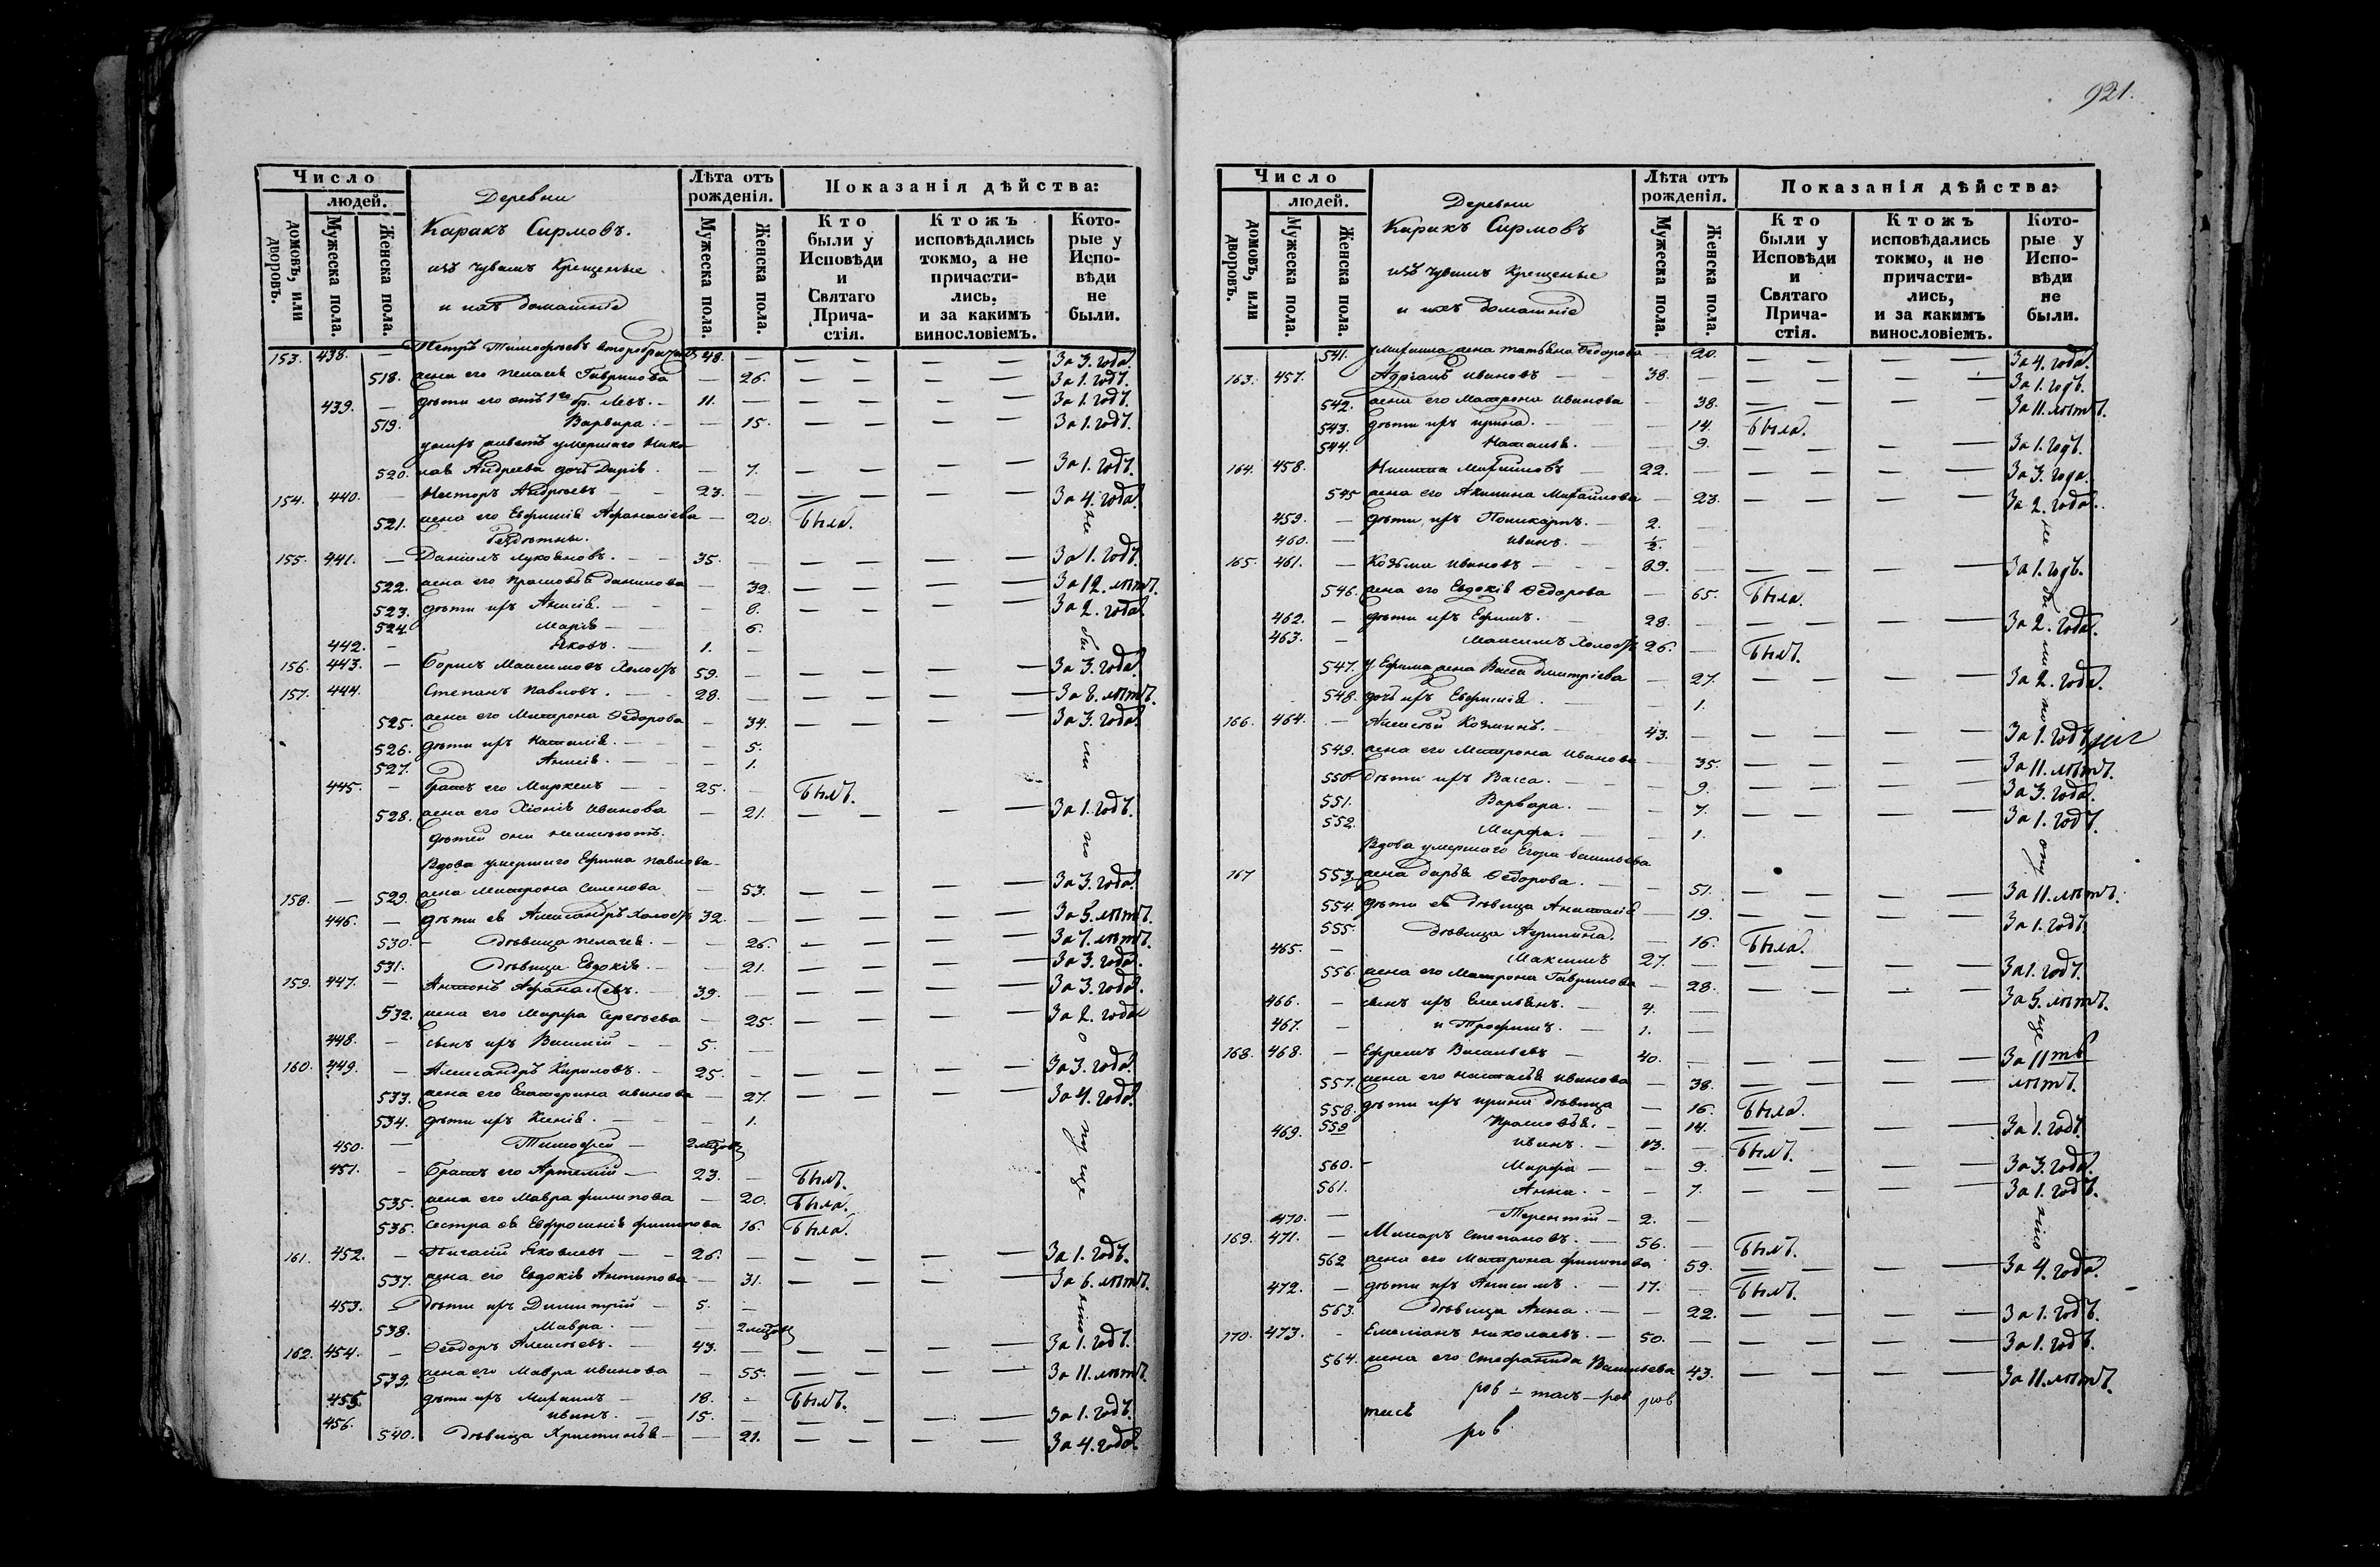 Число
людей.
домовъ, или дворовъ.
Мужеска пола.
Женска пола.
Деревни
Каракъ Сирмовъ.
изъ чувашъ Крещеные
и ихъ домашніе
Лѣта отъ рожденія.
Мужеска пола.
Женска пола.
Показанія дѣйства:
Кто были у Исповѣди и Святаго Причастія.
Ктожъ исповѣдались токмо, а не причастились, и за какимъ винословіемъ.
Которые у Исповѣди не были.
153. 438. — Петръ Тимофѣевъ второбрачный 48. — — — — — За 3. года.
518. жена его Пелагѣя Гаврилова — 26. — — — — За 1. годъ.
439. — дѣти его отъ 1го бр. Левъ. — 11. — — — — — За 1. годъ.
519. Варвара. — — 15. — — — — За 1. годъ.
у нихъ живетъ умершаго Нико
520. лая Андреева дочь Дарія. — 7. — — — — За 1. годъ.
154. 440. — Несторъ Андреевъ — 23. — — — — — За 4. года.
521. жена его Евфимія Афанасіева — 20. Была.
бездѣтны.
155. 441. — Даніилъ Лукояновъ. — 35. — — — — — За 1. годъ.
522. жена его Прасковья Данилова — 32. — — — — За 12. лѣтъ.
523. дѣти ихъ Анисія. — — 8. — — — — За 2. года.
524. Марія — — 6.
442. — Яковъ. — 1. —
156. 443. — Борисъ Максимовъ Холостъ 59. — — — — — За 3. года.
157. 444. Степанъ Павловъ. — 28. — — — — — За 8. лѣтъ.
525. жена его Матрона Ѳедорова — 34. — — — — За 3. года.
526. дѣти ихъ Наталія. — — 5.
527. Анисія. — — 1.
445. — братъ его Маркелъ — 25. — Былъ.
528. жена его Хіонія Иванова — 21. — — — — За 1. годъ.
дѣтей они неимѣютъ.
Вдова умершаго Ефима Павлова
158. — 529. жена Матрона Семенова — 53. — — — — За 3. года.
446. — дѣти ея Александръ Холостъ 32. — — — — — За 5. лѣтъ.
530. — Дѣвица Пелагея. — — 26. — — — — За 7. лѣтъ.
531. Дѣвица Евдокія. — — 21. — — — — За 3. года.
159. 447. — Антонъ Афанасьевъ. — 39. — — — — — За 3. года.
532. жена его Марфа Сергѣева — 25. — — — — За 2. года
448. — сынъ ихъ Василій — 5. —
160. 449. — Александръ Кириловъ. — 25. — — — — — За 3. года.
533. жена его Екатерина Иванова — 27. — — — — За 4. года.
534. дѣти ихъ Ксенія. — — 1.
450. — Тимофей —
451. — братъ его Артемій — 23. — Былъ.
535. жена его Мавра Филипова — 20. Была.
536. сестра ея Евфросинія Филипова 16. Была.
161. 452. — Пигасій Яковлевъ — 26. — — — — — За 1. годъ.
537. жена его Евдокія Антипова — 31. — — — — За 6. лѣтъ.
453. — Дѣти ихъ Димитрій — 5. —
538. Мавра. — —
162. 454. — Ѳеодоръ Алексѣевъ. — 43. — — — — — За 1. годъ.
539. жена его Мавра Иванова — 55. — — — — За 11. лѣтъ.
455. дѣти ихъ Михаилъ — 18. — Былъ.
456. Иванъ. — 15. — — — — — За 1. годъ.
540. Дѣвица Христинья — — 21. — — — — За 4. года.
не были по опущенію
921.
Число
людей.
домовъ, или дворовъ.
Мужеска пола.
Женска пола.
Деревни
Каракъ Сирмовъ
изъ чувашъ Крещеные
и ихъ домашніе
Лѣта отъ рожденія.
Мужеска пола.
Женска пола.
Показанія дѣйства:
Кто были у Исповѣди и Святаго Причастія.
Ктожъ исповѣдались токмо, а не причастились, и за какимъ винословіемъ.
Которые у Исповѣди не были.
541. у Михаила жена Татьяна Ѳедорова — 20. — — — — За 4. года.
163. 457. Адріанъ Ивановъ — 38. — — — — — За 1. годъ.
542. жена его Матрона Иванова — 38. — — — — За 11. лѣтъ.
543. дѣти ихъ Ирина. — — 14. Была.
544. Наталья. — — 9. — — — — За 1. годъ.
164. 458. Никита Михайловъ — 22. — — — — — За 3. года.
545 жена его Акилина Михайлова — 23. — — — — За 2. года.
459. — дѣти ихъ Поликарпъ. — 2. —
460. — Иванъ. — ½. —
165. 461. — Козьма Ивановъ — 89. — — — — — За 1. годъ.
546. жена его Евдокія Ѳедорова — 65. Была.
462. — дѣти ихъ Ефимъ. — 28. — — — — — За 2. года.
463. — Максимъ Холостъ 26. — Былъ.
547. у Ефима жена Васса Дмитріева — 27. — — — — За 2. года.
548. дочь ихъ Евфимія. — 1.
166. 464. — Алексѣй Козминъ. — 43. — — — — — За 1. годъ
549. жена его Матрона Иванова — 35. — — — — За 11. лѣтъ.
550. дѣти ихъ Васса. — — 9. — — — — За 3. года.
551. Варвара. — — 7. — — — — За 1. годъ.
552. Марфа. — — 1.
Вдова умершаго Егора Васильева
167 553. жена Дарья Ѳедорова. — — 51. — — — — За 11. лѣтъ.
554. дѣти ея Дѣвица Анастасія — 19. — — — — За 1. годъ.
555. Дѣвица Акулина. — 16. Была.
465. — Максимъ 27. — — — — — За 1. годъ.
556. жена его Матрона Гаврилова — 28. — — — — За 5. лѣтъ.
466. — сынъ ихъ Емельянъ. — 4. —
467. — и Трофимъ. — 1. —
168. 468. — Ефремъ Васильевъ — 40. — — — — — За 11ть
лѣтъ.
557. жена его Настасья Иванова — 38. — — — —
558. дѣти ихъ Ирина Дѣвица — 16. Была.
559 Прасковья. — — 14. — — — — За 1. годъ.
469. Иванъ. — 13. — Былъ.
560. — Марфа — — 9. — — — — За 3. года.
561. Анна. — — 7. — — — — За 1. годъ.
470. — Терентій — 2. —
169. 471. — Макаръ Степановъ. — 56. — Былъ.
562 жена его Матрона Филипова 59. — — — — За 4. года.
472. — дѣти ихъ Анисимъ. — 17. — Былъ.
563. Дѣвица Анна. — — 22. — — — — За 1. годъ.
170. 473. — Емеліанъ Николаевъ. — 50. — — — — — За 1. годъ.
564. жена его Стефанида Васильева 43. — — — — За 11. лѣтъ.
не были по опущенію